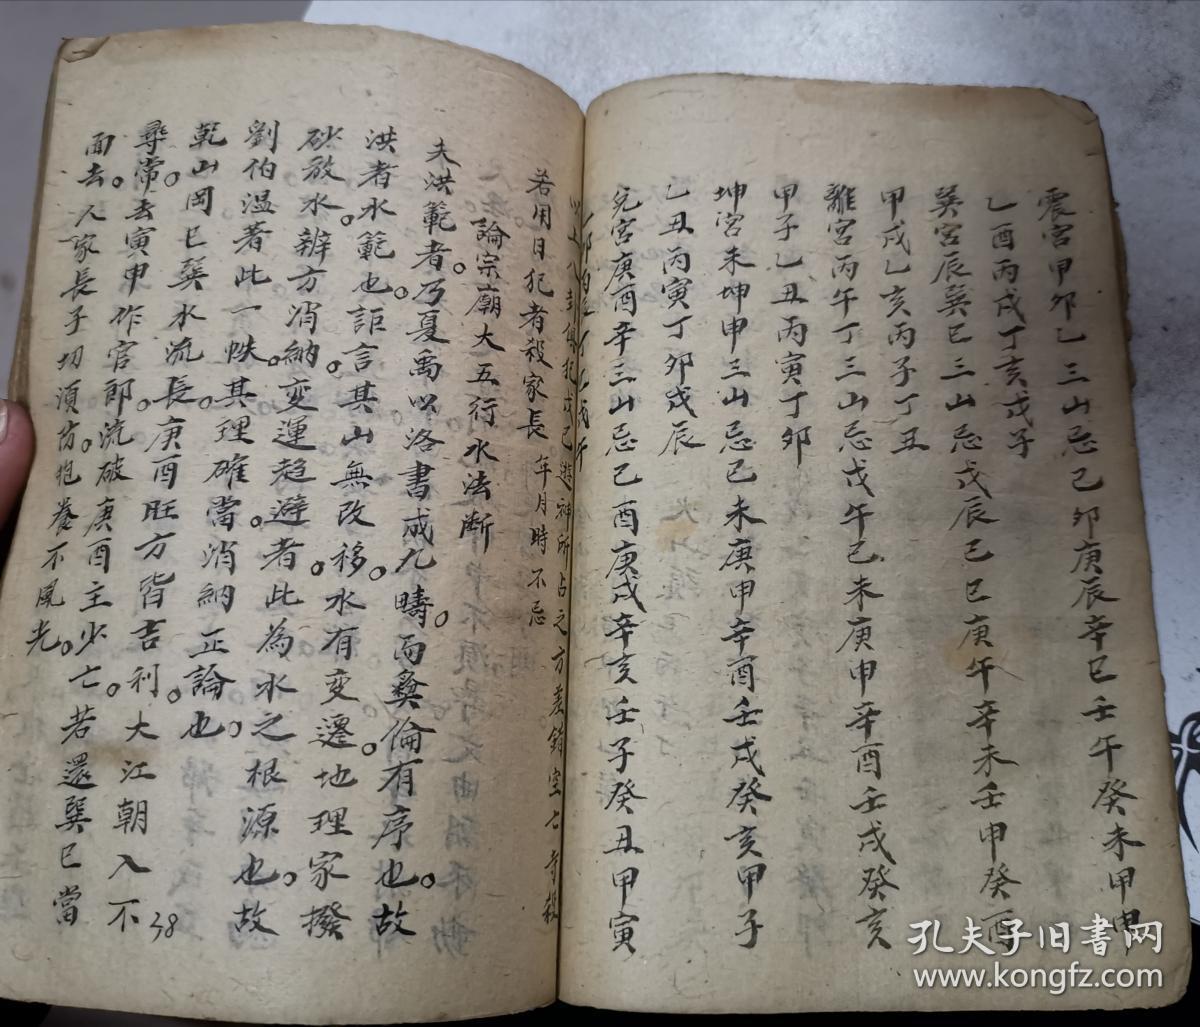 震宮甲卯乙三山忌己卯庚辰辛巳壬午癸未甲申
乙酉丙戌丁亥戊子
巽宮辰巽巳三山忌戊辰己巳庚午辛未壬申癸酉
甲戌乙亥丙子丁丑
離宮丙午丁三山忌戊午己未庚申辛酉壬戌癸亥
甲子乙丑丙寅丁卯
坤宮未坤申三山忌己未庚申辛酉壬戌癸亥甲子
乙丑丙寅丁卯戊辰
兌宮庚酉辛三山忌己酉庚戌辛亥壬子癸丑甲寅
以上八卦犯戊己遊神所占之方
若用日犯者殺家長 年月時不忌
論宗廟大五行水法斷
夫洪範者。乃夏禹以洛書成九疇。而彝倫有序也。故
洪者水範也。詎言其山無改移。水有变遷。地理家撥
砂放水。辨方消納。变運趨避者。此為水之根源也。故
劉伯温著此一帙。其理確當。消納正論也。
乾山岡巳巽水流長。庚酉旺方皆吉利。大江朝入不
尋常。去寅申作官郎。流破庚酉主少亡。若還巽巳當
面去。人家長子切須防。抱養不風光。
38
孔夫子旧書网
www.kongfz.com